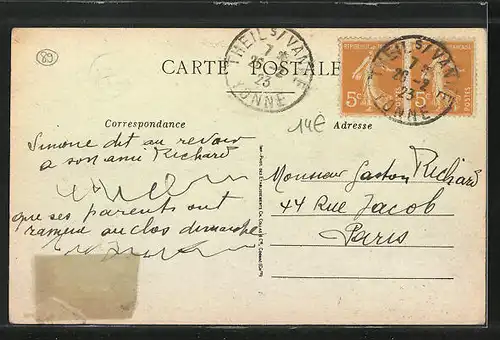 89
CARTE POSTALE
THEIL S/ VANNE
7 *
26 - 2
23
YONNE
THEIL S/ VANNE
7 *
26 - 2
23
YONNE
5c
5c
POSTES
14€
Correspondance
Adresse
Simone dit au revoir
a son ami Richard
que ses parents ont
ramené au clos dimanche
Monsieur Gaston Richard
44 Rue Jacob
Paris